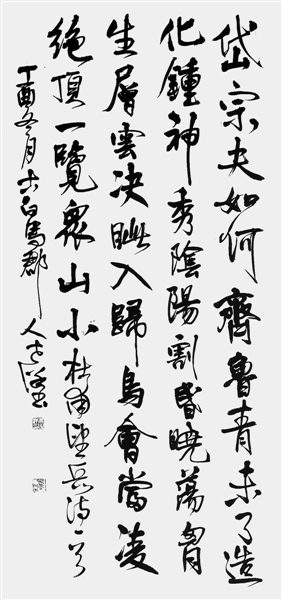 岱宗夫如何齊魯青未了造
化鍾神秀陰陽割昏曉蕩胷
生層雲決眥入歸鳥會當凌
絕頂一覽衆山小杜甫望岳诗一首
丁酉冬月古白馬郡人